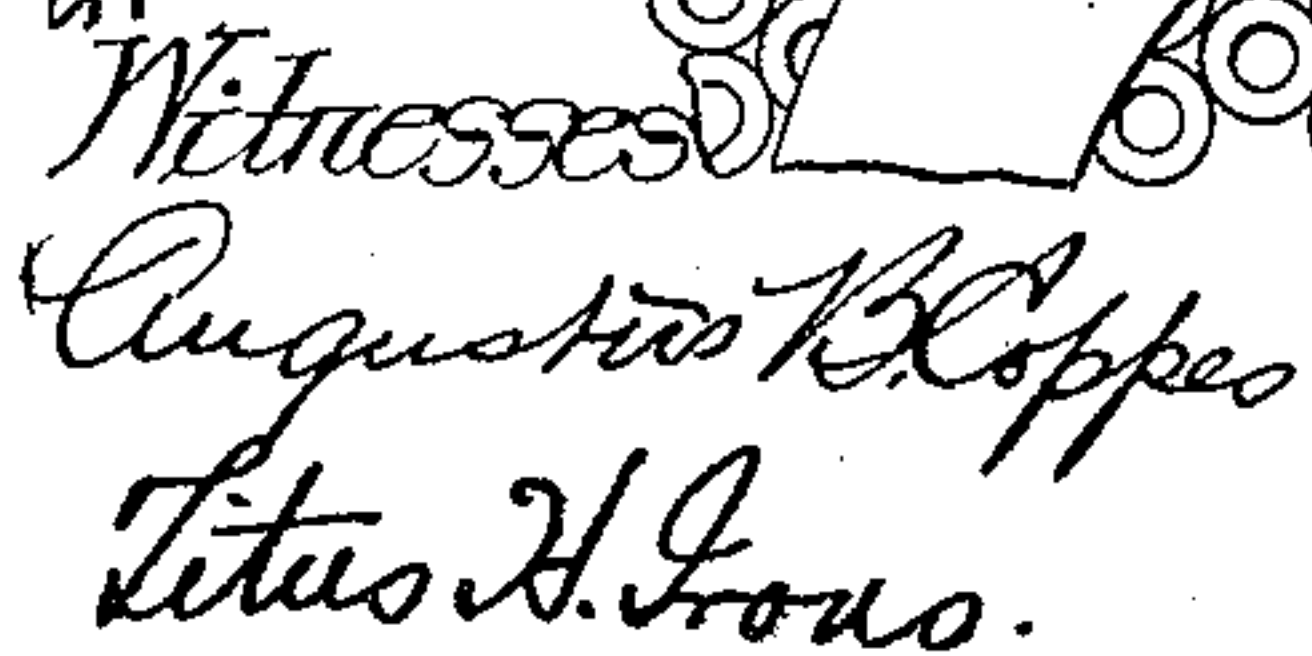 Witnesses
Augustus B. Coppes
Titus H. Irons.